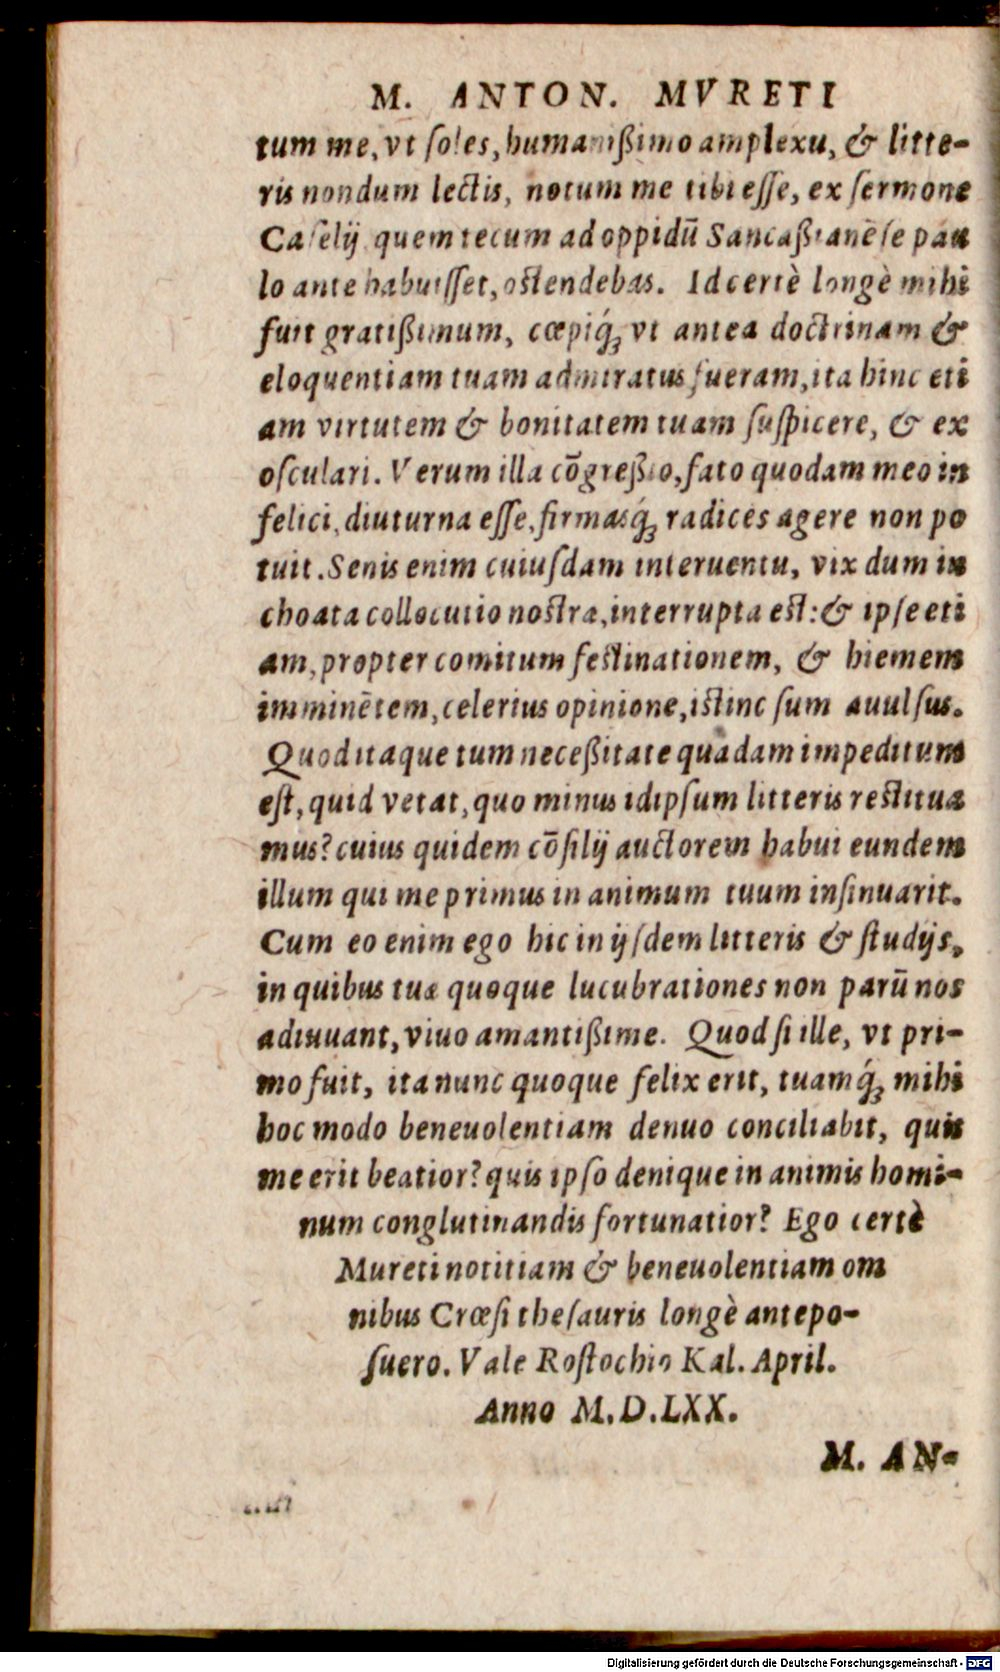 M. ANTON. MVRETI
tum me, vt soles, humanißimo amplexu, & litte-
ris nondum lectis, notum me tibi esse, ex sermone
Caselij quem tecum ad oppidū Sancaßianēse pau
lo ante habuisset, ostendebas. Id certè longè mihi
fuit gratißimum, cœpiq́ꝫ vt antea doctrinam &
eloquentiam tuam admiratus fueram, ita hinc eti
am virtutem & bonitatem tuam suspicere, & ex
osculari. Verum illa cōgreßio, fato quodam meo in
felici, diuturna esse, firmasq́ꝫ radices agere non po
tuit. Senis enim cuiusdam interuentu, vix dum in
choata collocutio nostra, interrupta est: & ipse eti
am, propter comitum festinationem, & hiemem
imminētem, celerius opinione, istinc sum auulsus.
Quod itaque tum neceßitate quadam impeditum
est, quid vetat, quo minus idipsum litteris restitua
mus? cuius quidem cōsilij auctorem habui eundem
illum qui me primus in animum tuum insinuarit.
Cum eo enim ego hic in ijsdem litteris & studijs,
in quibus tuæ quoque lucubrationes non parū nos
adiuuant, viuo amantißime. Quod si ille, vt pri-
mo fuit, ita nunc quoque felix erit, tuamq́ꝫ mihi
hoc modo beneuolentiam denuo conciliabit, quis
me erit beatior? quis ipso denique in animis homi-
num conglutinandis fortunatior? Ego certè
Mureti notitiam & beneuolentiam om
nibus Crœsi thesauris longè antepo-
suero. Vale Rostochio Kal. April.
Anno M.D.LXX.
M. AN-
Digitalisierung gefördert durch die Deutsche Forschungsgemeinschaft - DFG